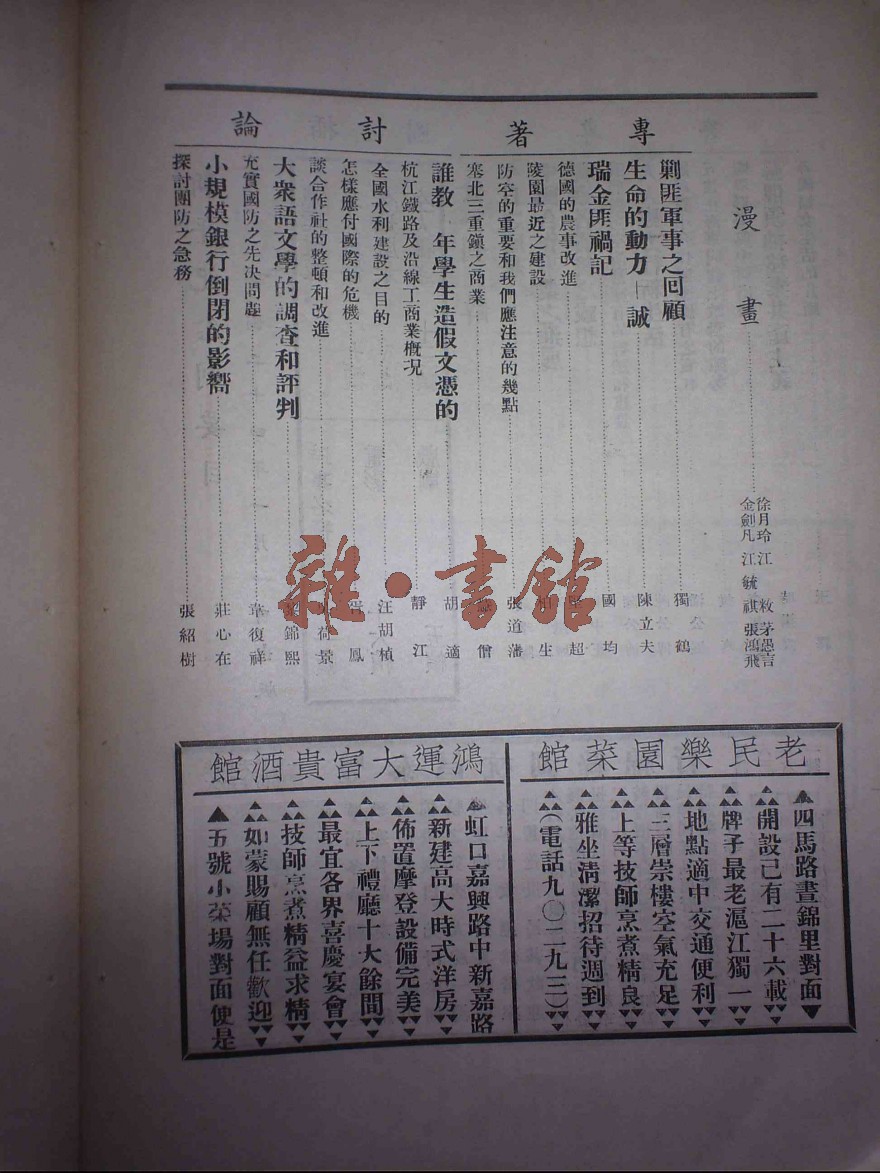 漫畫
徐月玲 江敉 茅愚言
金劍凡 江毓祺 張鴻飛
專著
剿匪軍事之回顧 獨鶴
生命的動力—誠 陳立夫
瑞金匪禍記 國均
德國的農事改進 超
陵園最近之建設 生
防空的重要和我們應注意的幾點 張道藩
塞北三重鎮之商業 僧
討論
誰教 年學生造假文憑的 胡適
杭江鐵路及沿線工商業概况 靜江
全國水利建設之目的 汪胡楨
怎樣應付國際的危機 鳳
談合作社的整頓和改進 荷景
大衆語文學的調查和評判 黎錦熙
充實國防之先决問題 章復祥
小規模銀行倒閉的影響 莊心在
探討團防之急務 張紹樹
雜·書館
老民樂園菜館
四馬路晝錦里對面
開設已有二十六載
牌子最老滬江獨一
地點適中交通便利
三層崇樓空氣充足
上等技師烹煮精良
雅坐淸潔招待週到
(電話九〇二九三)
鴻運大富貴酒館
虹口嘉興路中新嘉路
新建高大時式洋房
佈置摩登設備完美
上下禮廳十大餘間
最宜各界喜慶宴會
技師烹煮精益求精
如蒙賜顧無任歡迎
五號小菜場對面便是